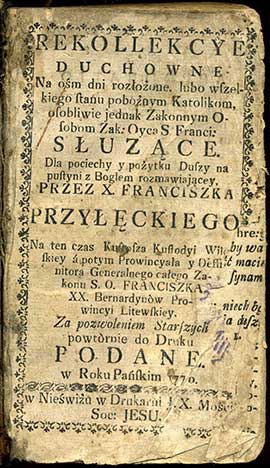 REKOLLEKCYE
DUCHOWNE
Na ośm dni rozłożone. lubo wszel-
kiego stanu pobożnym Katolikom,
osobliwie jednak Zakonnym O-
sobom Zak: Oyca S Franci:
SŁUZĄCE.
Dla pociechy y pożytku Duszy na
pustyni z Bogiem rozmawiającey.
PRZEZ X. FRANCISZKA
PRZYŁĘCKIEGO
Na ten czas Kustosza Kustodyi
skiey á potym Prowincyała y
nitora Generalnego całego Za-
konu S. O. FRANCISZKA
XX. Bernardynów Pro-
wincyi Litewskiey.
Za pozwoleniem Starszych
powtòrnie do Druku
PODANE.
w Roku Pańskim 1770.
w Nieświżu w Drukarni J. X. Mości
Soc: JESU.
hre:
by wa
macie
synam
niech bę